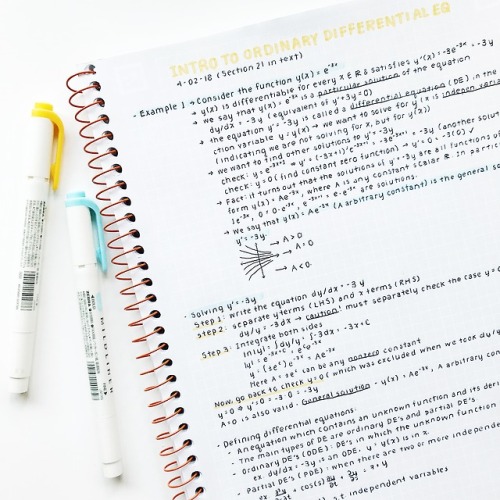 INTRO TO ORDINARY DIFFERENTIAL EQ
4-02-18 (Section 21 in text)
- Example 1 → Consider the function y(x) = e^-3x
→ y(x) is differentiable for every x ∈ R & satisfies y'(x) = -3e^-3x = -3y
→ we say that y(x) = e^-3x is a particular solution of the equation
dy/dx = -3y (equivalent of y'+3y=0)
→ the equation y' = -3y is called a differential equation (DE) in the
ction variable y = y(x) → we want to solve for y (x is indepen varia
(indicating we are not solving for x, but for y(x))
→ we want to find other solutions to y' = -3y
check: y = 0 (find constant zero function) → y' = 0 = -3(0) ✓
→ Fact: it turns out that the solutions of y' = -3y are all functions o
form y(x) = Ae^-3x, where A is any constant scalar
are solutions.
→ we say that y(x) = Ae^-3x (A arbitrary constant) is the general so
y' = -3y.
→ A > 0
→ A = 0
→ A < 0
- Solving y' = -3y
Step 1: write the equation dy/dx = -3y
Step 2: separate y terms (LHS) and x terms (RHS)
dy/y = -3dx → caution! must separately check the case y =
Step 3: Integrate both sides
ln|y| = ∫dy/y = ∫-3dx = -3x+C
|y| = e^-3x+C = e^C e^-3x
y = (±e^C) e^-3x = Ae^-3x
Here A = ±e^C can be any nonzero constant
Now, go back to check y=0 (which was excluded when we took dy/
y=0 → y'=0 = -3·0 = -3y
A=0 is also valid. General solution = y(x) = Ae^-3x, A arbitrary con
- Defining differential equations:
- An equation which contains an unknown function and its der
- The main types of DE are ordinary DE's and partial DE's.
- Ordinary DE's (ODE): DE's in which the unknown function
ex. dy/dx = -3y is an ODE. y = y(x) is in x.
- Partial DE's (PDE): when there are two or more independe
independent variables